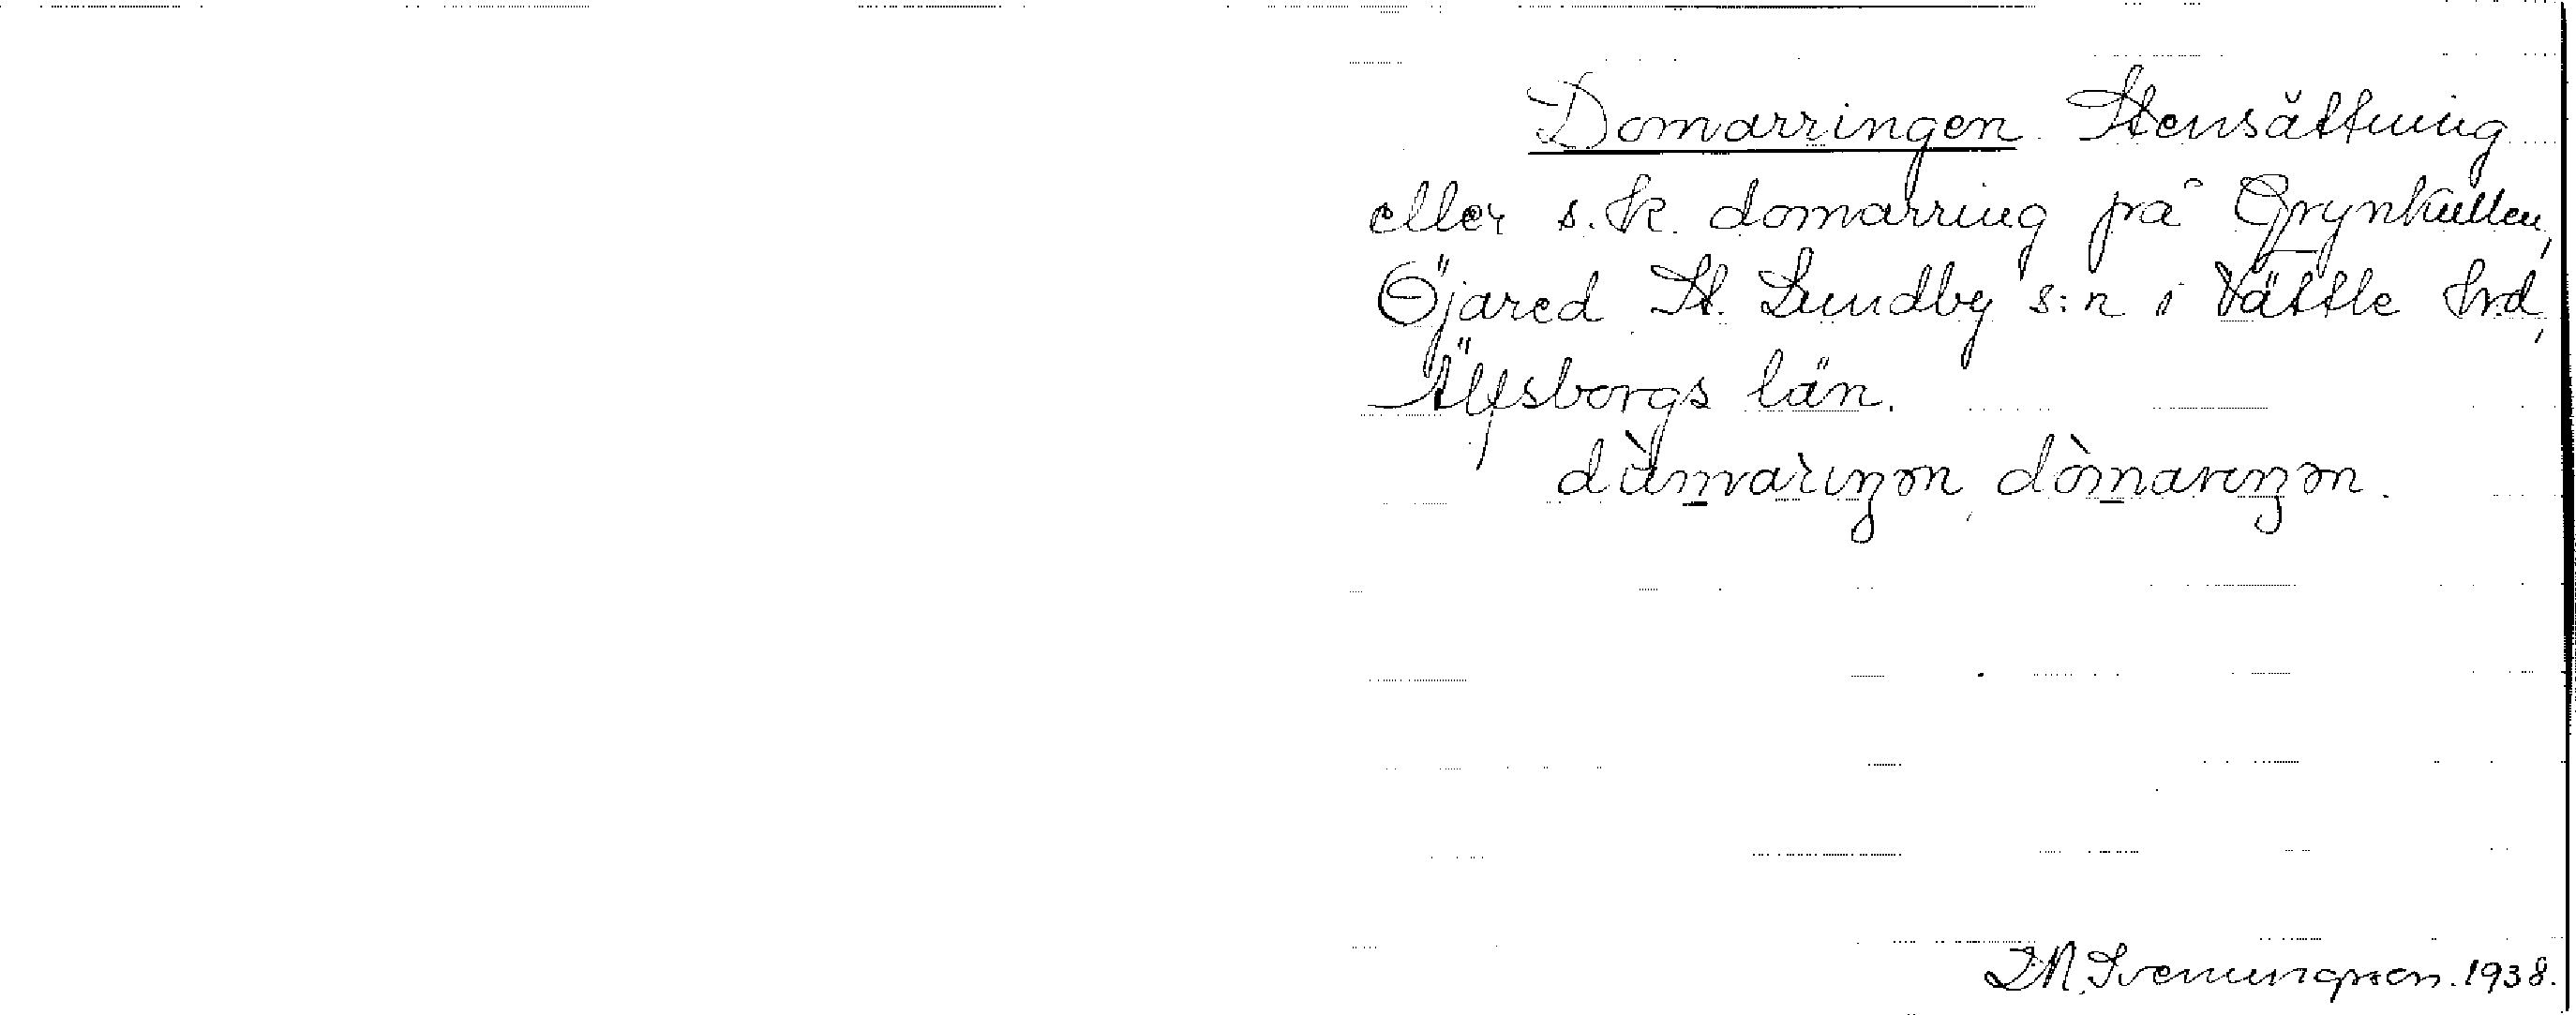 Domarringen. Stensättning
eller s.k. domarring på Grynkullen,
Öjared St. Lundby s:n i Vättle hrd,
Älfsborgs län.
dòmarıŋən.
Svenningsson. 1938.